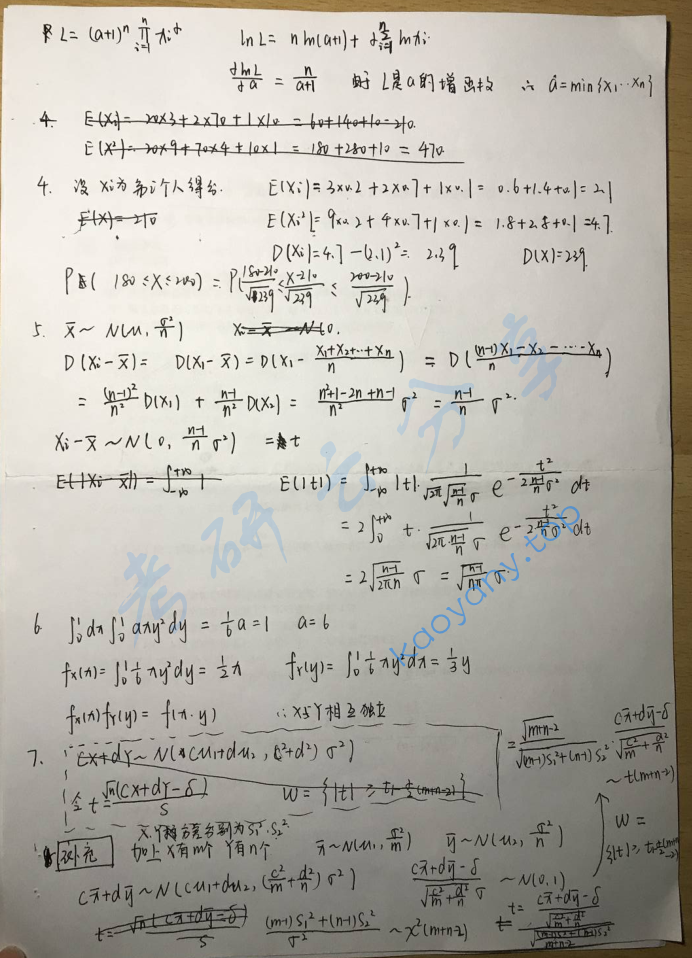 L = (a+1)ⁿ ∏_{i=1}^{n} xi^α    ln L = n ln(a+1) + α ∑_{i=1}^{n} ln xi
dlnL/da = n/(a+1)    L是a的增函数    ∴ â = min{x1…xn}
4. E(Xi) = 20×3+2×70+1×10 = 60+140+10 = 210.
E(X²) = 20×9+70×4+10×1 = 180+280+10 = 470
4. 设 Xi为第i个人得分.    E(Xi) = 3×0.2 + 2×0.7 + 1×0.1 = 0.6+1.4+0.1 = 2.1
E(X) = 210    E(Xi²) = 9×0.2 + 4×0.7 + 1×0.1 = 1.8+2.8+0.1 = 4.7.
D(Xi) = 4.7 − (2.1)² = 2.39    D(X) = 239.
P( 180 ≤ X ≤ 200) = P( (180-210)/√239 ≤ (X-210)/√239 ≤ (200-210)/√239 ).
5. x̄ ~ N(u, σ²/n)
D(Xi − x̄) = D(X1 − x̄) = D(X1 − (X1+X2+…+Xn)/n) = D( ((n-1)X1 − X2 − … − Xn)/n )
= (n-1)²/n² D(X1) + (n-1)/n² D(X2) = (n²+1-2n+n-1)/n² σ² = (n-1)/n σ².
Xi − x̄ ~ N(0, (n-1)/n σ²) = t
E(|Xi − x̄|) = ∫_{-∞}^{+∞} |    E(|t|) = ∫_{-∞}^{+∞} |t| · 1/(√2π √((n-1)/n) σ) e^{− t²/(2 (n-1)/n σ²)} dt
= 2∫_{0}^{+∞} t · 1/(√(2π·(n-1)/n) σ) e^{− t²/(2 (n-1)/n σ²)} dt
= 2√((n-1)/(2πn)) σ = √((n-1)/(nπ)) σ.
6 ∫₀¹dx∫₀¹ axy²dy = 1/6 a = 1    a = 6
fx(x) = ∫₀¹ 1/6 xy²dy = 1/2 x    fY(y) = ∫₀¹ 1/6 xy²dx = 1/3 y
fx(x) fY(y) = f(x·y)    ∴ X与Y相互独立
7. cX+dY ~ N(cu1+du2, (c²+d²) σ²)
令 t = √n(cX+dY−δ)/S    W = {|t| ≥ t_{1-α/2}(m+n-2)}
X.Y 方差分别为 S1². S2²
补充 加上X有m个 Y有n个    x̄ ~ N(u1, σ²/m)    ȳ ~ N(u2, σ²/n)
cx̄+dȳ ~ N(cu1+du2, (c²/m + d²/n) σ²)    (cx̄+dȳ−δ)/(√(c²/m + d²/n) σ) ~ N(0,1)
t = √n(cx̄+dȳ−δ)/S    ((m-1)S1²+(n-1)S2²)/σ² ~ χ²(m+n-2)    t = ((cx̄+dȳ−δ)/√(c²/m + d²/n)) / √(((m-1)S1²+(n-1)S2²)/(m+n-2))
= √(m+n-2)/√((m-1)S1²+(n-1)S2²) · (cx̄+dȳ−δ)/√(c²/m + d²/n)
~ t(m+n-2)
W =
{|t| ≥ t_{1-α/2}(m+n-2)}
考研云分享
kaoyany.top